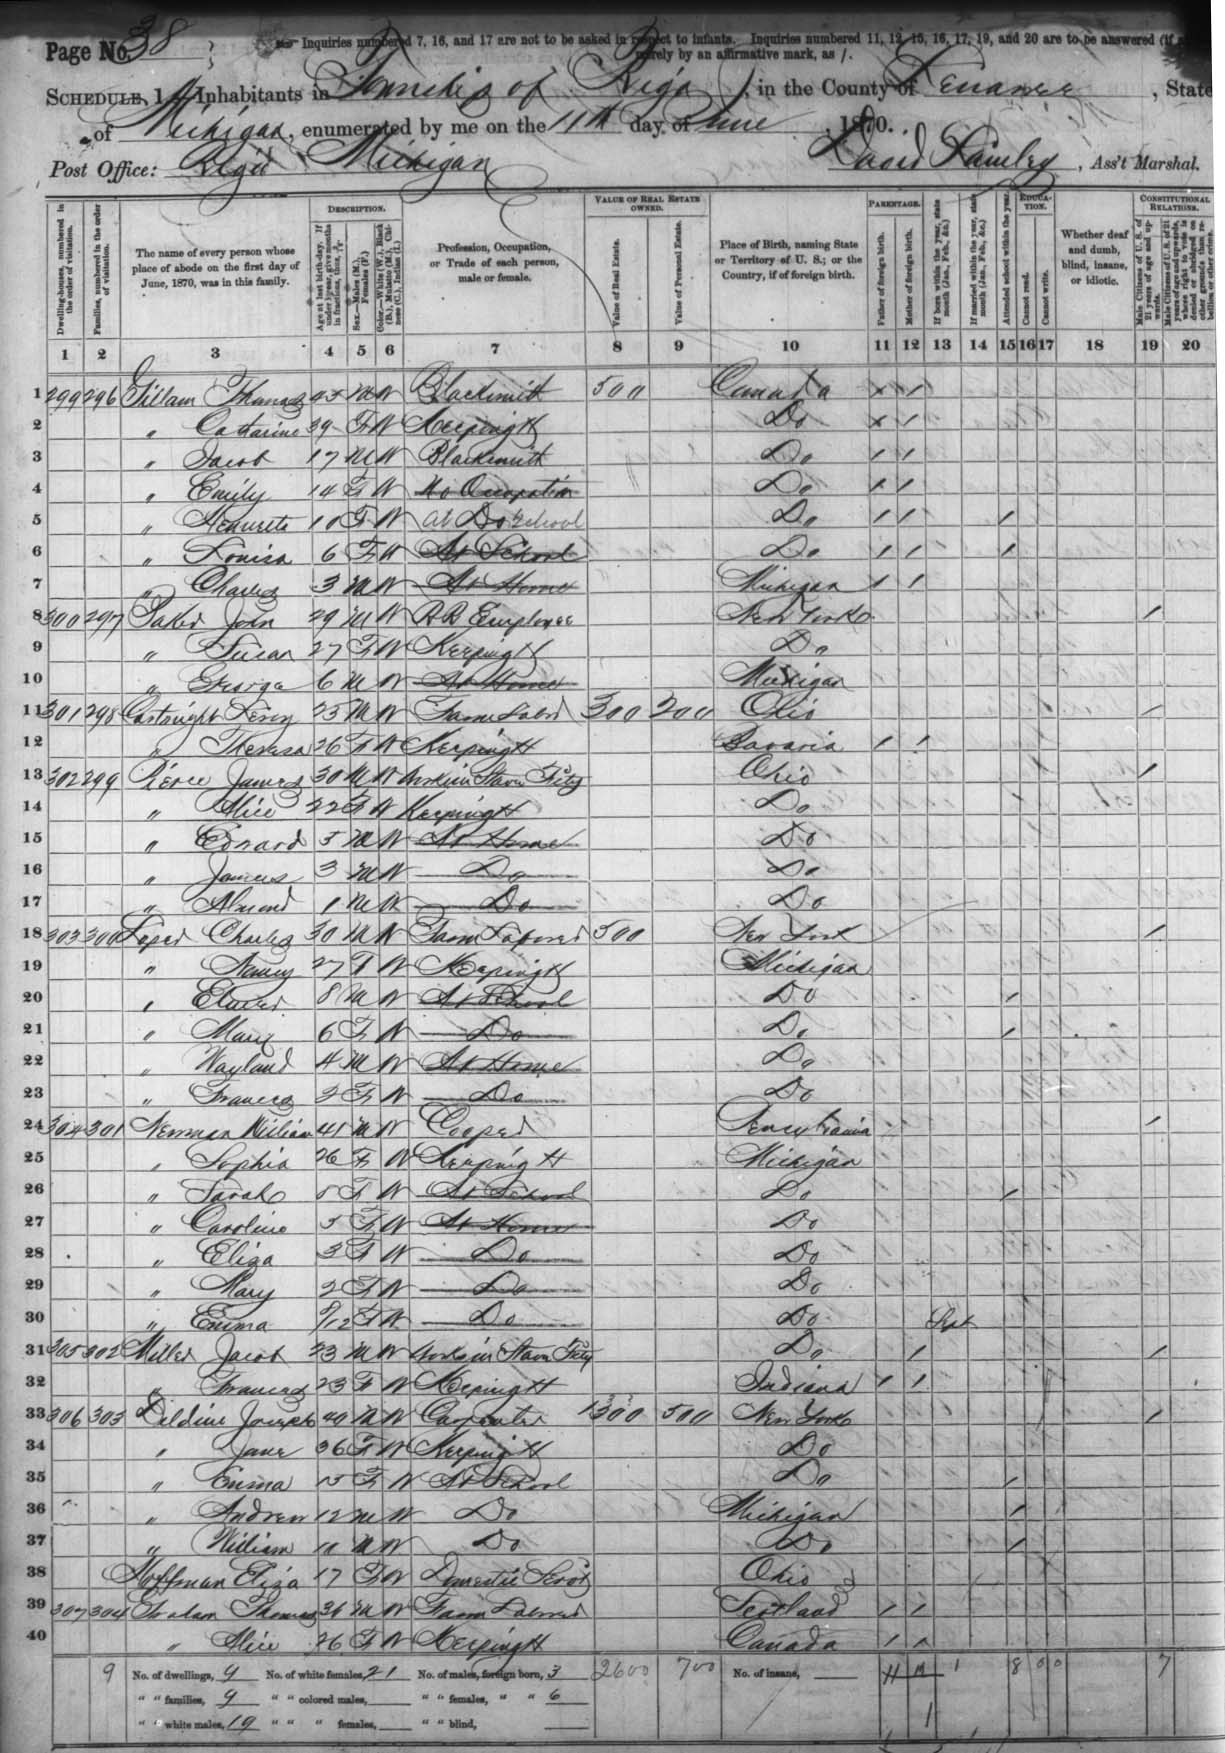 Page No. 38
Inquiries numbered 7, 16, and 17 are not to be asked in respect to infants. Inquiries numbered 11, 12, 15, 16, 17, 19, and 20 are to be answered (if
merely by an affirmative mark, as /.
SCHEDULE 1. Inhabitants in Township of Riga, in the County of Lenawee, State
of Michigan, enumerated by me on the 11th day of June, 1870.
Post Office: Riga Michigan David, Ass't Marshal.
Dwelling-houses, numbered in the order of visitation.
Families, numbered in the order of visitation.
The name of every person whose place of abode on the first day of June, 1870, was in this family.
DESCRIPTION.
Age at last birth-day. If under 1 year, give months in fractions, thus, 3/12
Sex.—Males (M.), Females (F.)
Color.—White (W.), Black (B.), Mulatto (M.), Chinese (C.), Indian (I.)
Profession, Occupation, or Trade of each person, male or female.
VALUE OF REAL ESTATE OWNED.
Value of Real Estate.
Value of Personal Estate.
Place of Birth, naming State or Territory of U. S.; or the Country, if of foreign birth.
PARENTAGE.
Father of foreign birth.
Mother of foreign birth.
If born within the year, state month (Jan., Feb., &c.)
If married within the year, state month (Jan., Feb., &c.)
EDUCATION.
Attended school within the year.
Cannot read.
Cannot write.
Whether deaf and dumb, blind, insane, or idiotic.
CONSTITUTIONAL RELATIONS.
Male Citizens of U. S. of 21 years of age and upwards.
Male Citizens of U. S. of 21 years of age and upwards, whose right to vote is denied or abridged on other grounds than rebellion or other crime.
1 2 3 4 5 6 7 8 9 10 11 12 13 14 15 16 17 18 19 20
1 299 296 Thomas 45 M W Blacksmith 500 Canada / /
2 " Catharine 39 F W Keeping H Do / /
3 " Jacob 17 M W Blacksmith Do / /
4 " Emily 14 F W No Occupation Do / /
5 " 10 F W At School Do / / /
6 " Louisa 6 F W At School Do / / /
7 " Charles 3 M W At Home Michigan / /
8 300 297 John 29 M W RR Employee New York /
9 " Susan 27 F W Keeping H Do
10 " George 6 M W At Home Michigan
11 301 298 Cartright 25 M W Farm Labor 300 200 Ohio /
12 " Theresa 26 F W Keeping H Bavaria / /
13 302 299 Pierce James 30 M W Works in Stave Fcty Ohio /
14 " Alice 22 F W Keeping H Do
15 " Edward 5 M W At Home Do
16 " James 3 M W Do Do
17 " Almond 1 M W Do Do
18 303 300 Charles 30 M W Farm Laborer 500 New York /
19 " Nancy 27 F W Keeping H Michigan
20 " 8 M W At School Do /
21 " Mary 6 F W Do Do /
22 " Wayland 4 M W At Home Do
23 " Frances 2 F W Do Do
24 304 301 Newman William 41 M W Cooper Pensylvania /
25 " Sophia 26 F W Keeping H Michigan
26 " Sarah 8 F W At School Do /
27 " Caroline 5 F W At Home Do
28 " Eliza 3 F W Do Do
29 " Mary 2 F W Do Do
30 " Emma 9/12 F W Do Do Sept
31 305 302 Miller Jacob 23 M W Works in Stave Fcty Do / /
32 " Frances 23 F W Keeping H Indiana / /
33 306 303 Deldine Joseph 40 M W Carpenter 1300 500 New York /
34 " Jane 36 F W Keeping H Do
35 " Emma 15 F W At School Do /
36 " Andrew 12 M W Do Michigan /
37 " William 11 M W Do Do /
38 Hoffman Eliza 17 F W Domestic Servt Ohio
39 307 304 Graham Thomas 36 M W Farm Laborer Scotland / /
40 " Alice 26 F W Keeping H Canada / /
9 No. of dwellings, 9 No. of white females, 21 No. of males, foreign born, 3 2600 700 No. of insane, 1 8 0 0 7
" " families, 9 " " colored males, " " females, " " 6
" " white males, 19 " " " females, " " blind,